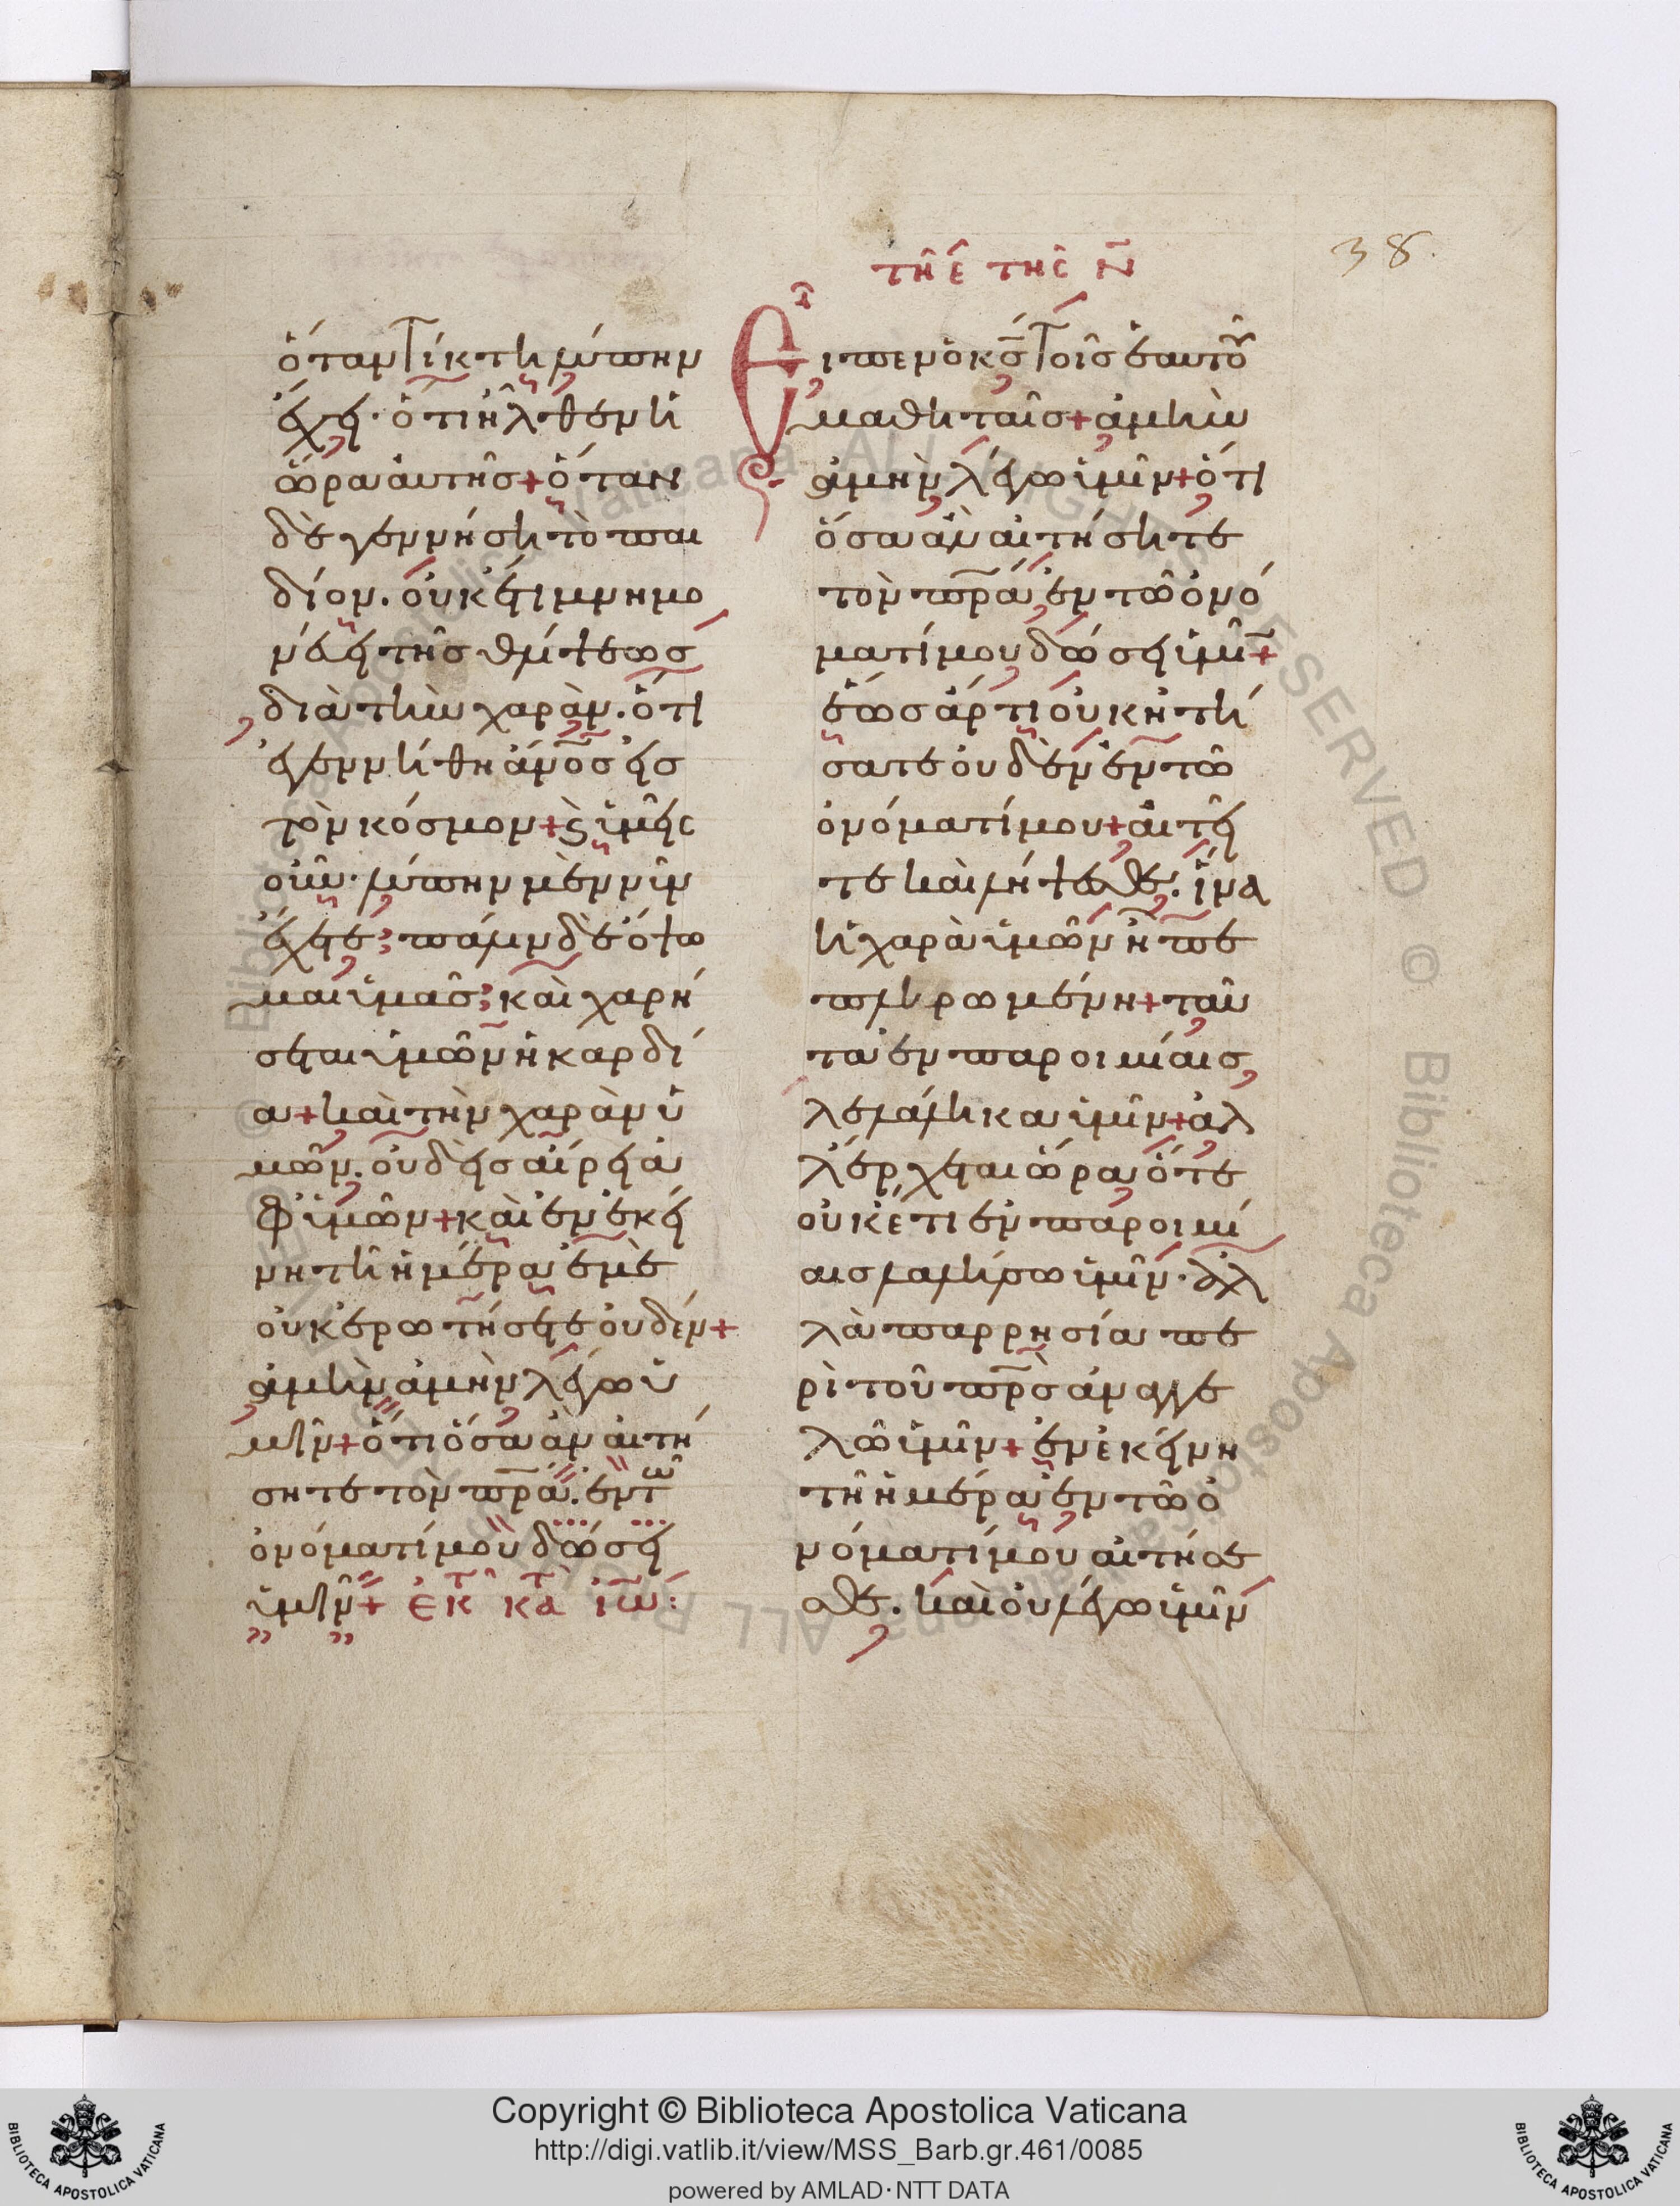 38.
ὅταν τίκτη λύπην
ἔχει· ὅτι ἦλθεν ἡ
ὥρα αὐτῆς + ὅταν
δὲ γεννήση τὸ παι
δίον. οὐκέτι μνημο
νεύει τῆς θλίψεως
διὰ τὴν χαρὰν. ὅτι
ἐγεννήθη ἄν̅ο̅ς̅ εἰς
τὸν κόσμον + ϗ ὑμεῖς
οὖν· λύπην μὲν νῦν
ἔχετε; πάλιν δὲ ὄψο
μαι ὑμᾶς; καὶ χαρή
σεται ὑμῶν ἡ καρδί
α + καὶ τὴν χαρὰν ὑ
μῶν. οὐδεὶς αἴρει ἀ
φ' ὑμῶν + καὶ ἐν ἐκεί
νη τῆ ἡμέρα ἐμὲ
οὐκ ἐρωτήσετε οὐδέν +
ἀμὴν ἀμὴν λέγω ὑ
μῖν + ὅτι ὅσα ἂν αἰτή
σητε τὸν π̅ρ̅α̅. ἐν τῶ
ὀνόματί μου δώσει
ὑμῖν + ἐκ τ κατ ἰω:
τῆ ε τῆς ν
Εἶπεν ὁ κ̅ς̅ τοῖς ἑαυτοῦ
μαθηταῖς + ἀμὴν
ἀμὴν λέγω ὑμῖν + ὅτι
ὅσα ἂν αἰτήσητε
τὸν π̅ρ̅α̅ ἐν τῶ ὀνό
ματί μου δώσει ὑμῖ̅ +
ἕως ἄρτι οὐκ ἠτή
σατε οὐδὲν ἐν τῶ
ὀνόματί μου + αἰτεῖ
τε καὶ λήψεσθε. ἵνα
ἡ χαρὰ ὑμῶν ἦ πε
πληρωμένη + ταῦ
τα ἐν παροιμίαις
λελάληκα ὑμῖν + ἀλ
λ' ἔρχεται ὥρα ὅτε
οὐκέτι ἐν παροιμί
αις λαλήσω ὑμῖν· ἀλ
λὰ παρρησία πε
ρὶ τοῦ π̅ρ̅ς̅ ἀναγγε
λῶ ὑμῖν + ἐν ἐκείνη
τῆ ἡμέρα ἐν τῶ ὀ
νόματί μου αἰτήσε
σθε. καὶ οὐ λέγω ὑμῖν
Copyright © Biblioteca Apostolica Vaticana
http://digi.vatlib.it/view/MSS_Barb.gr.461/0085
powered by AMLAD·NTT DATA
BIBLIOTECA APOSTOLICA VATICANA
BIBLIOTECA APOSTOLICA VATICANA